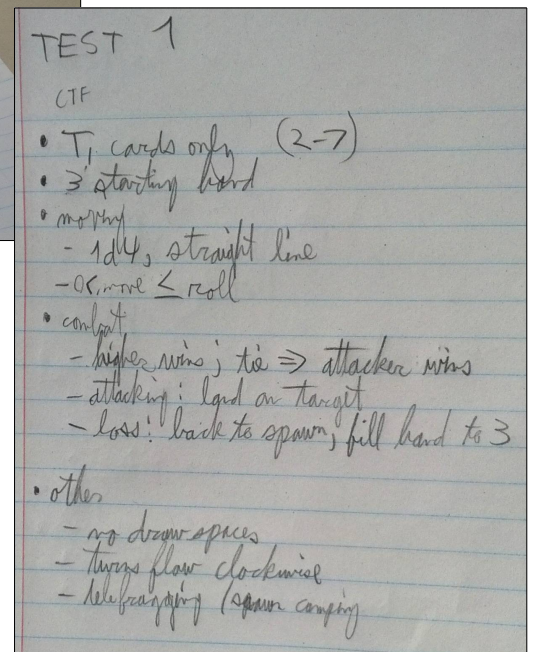 TEST 1
CTF
• T1 cards only (2-7)
• 3 starting hand
• moving
- 1d4, straight line
- OK, move ≤ roll
• combat
- higher wins; tie ⇒ attacker wins
- attacking: land on target
- loss: back to spawn, fill hand to 3
• other
- no draw spaces
- turns flow clockwise
- telefragging / spawn camping